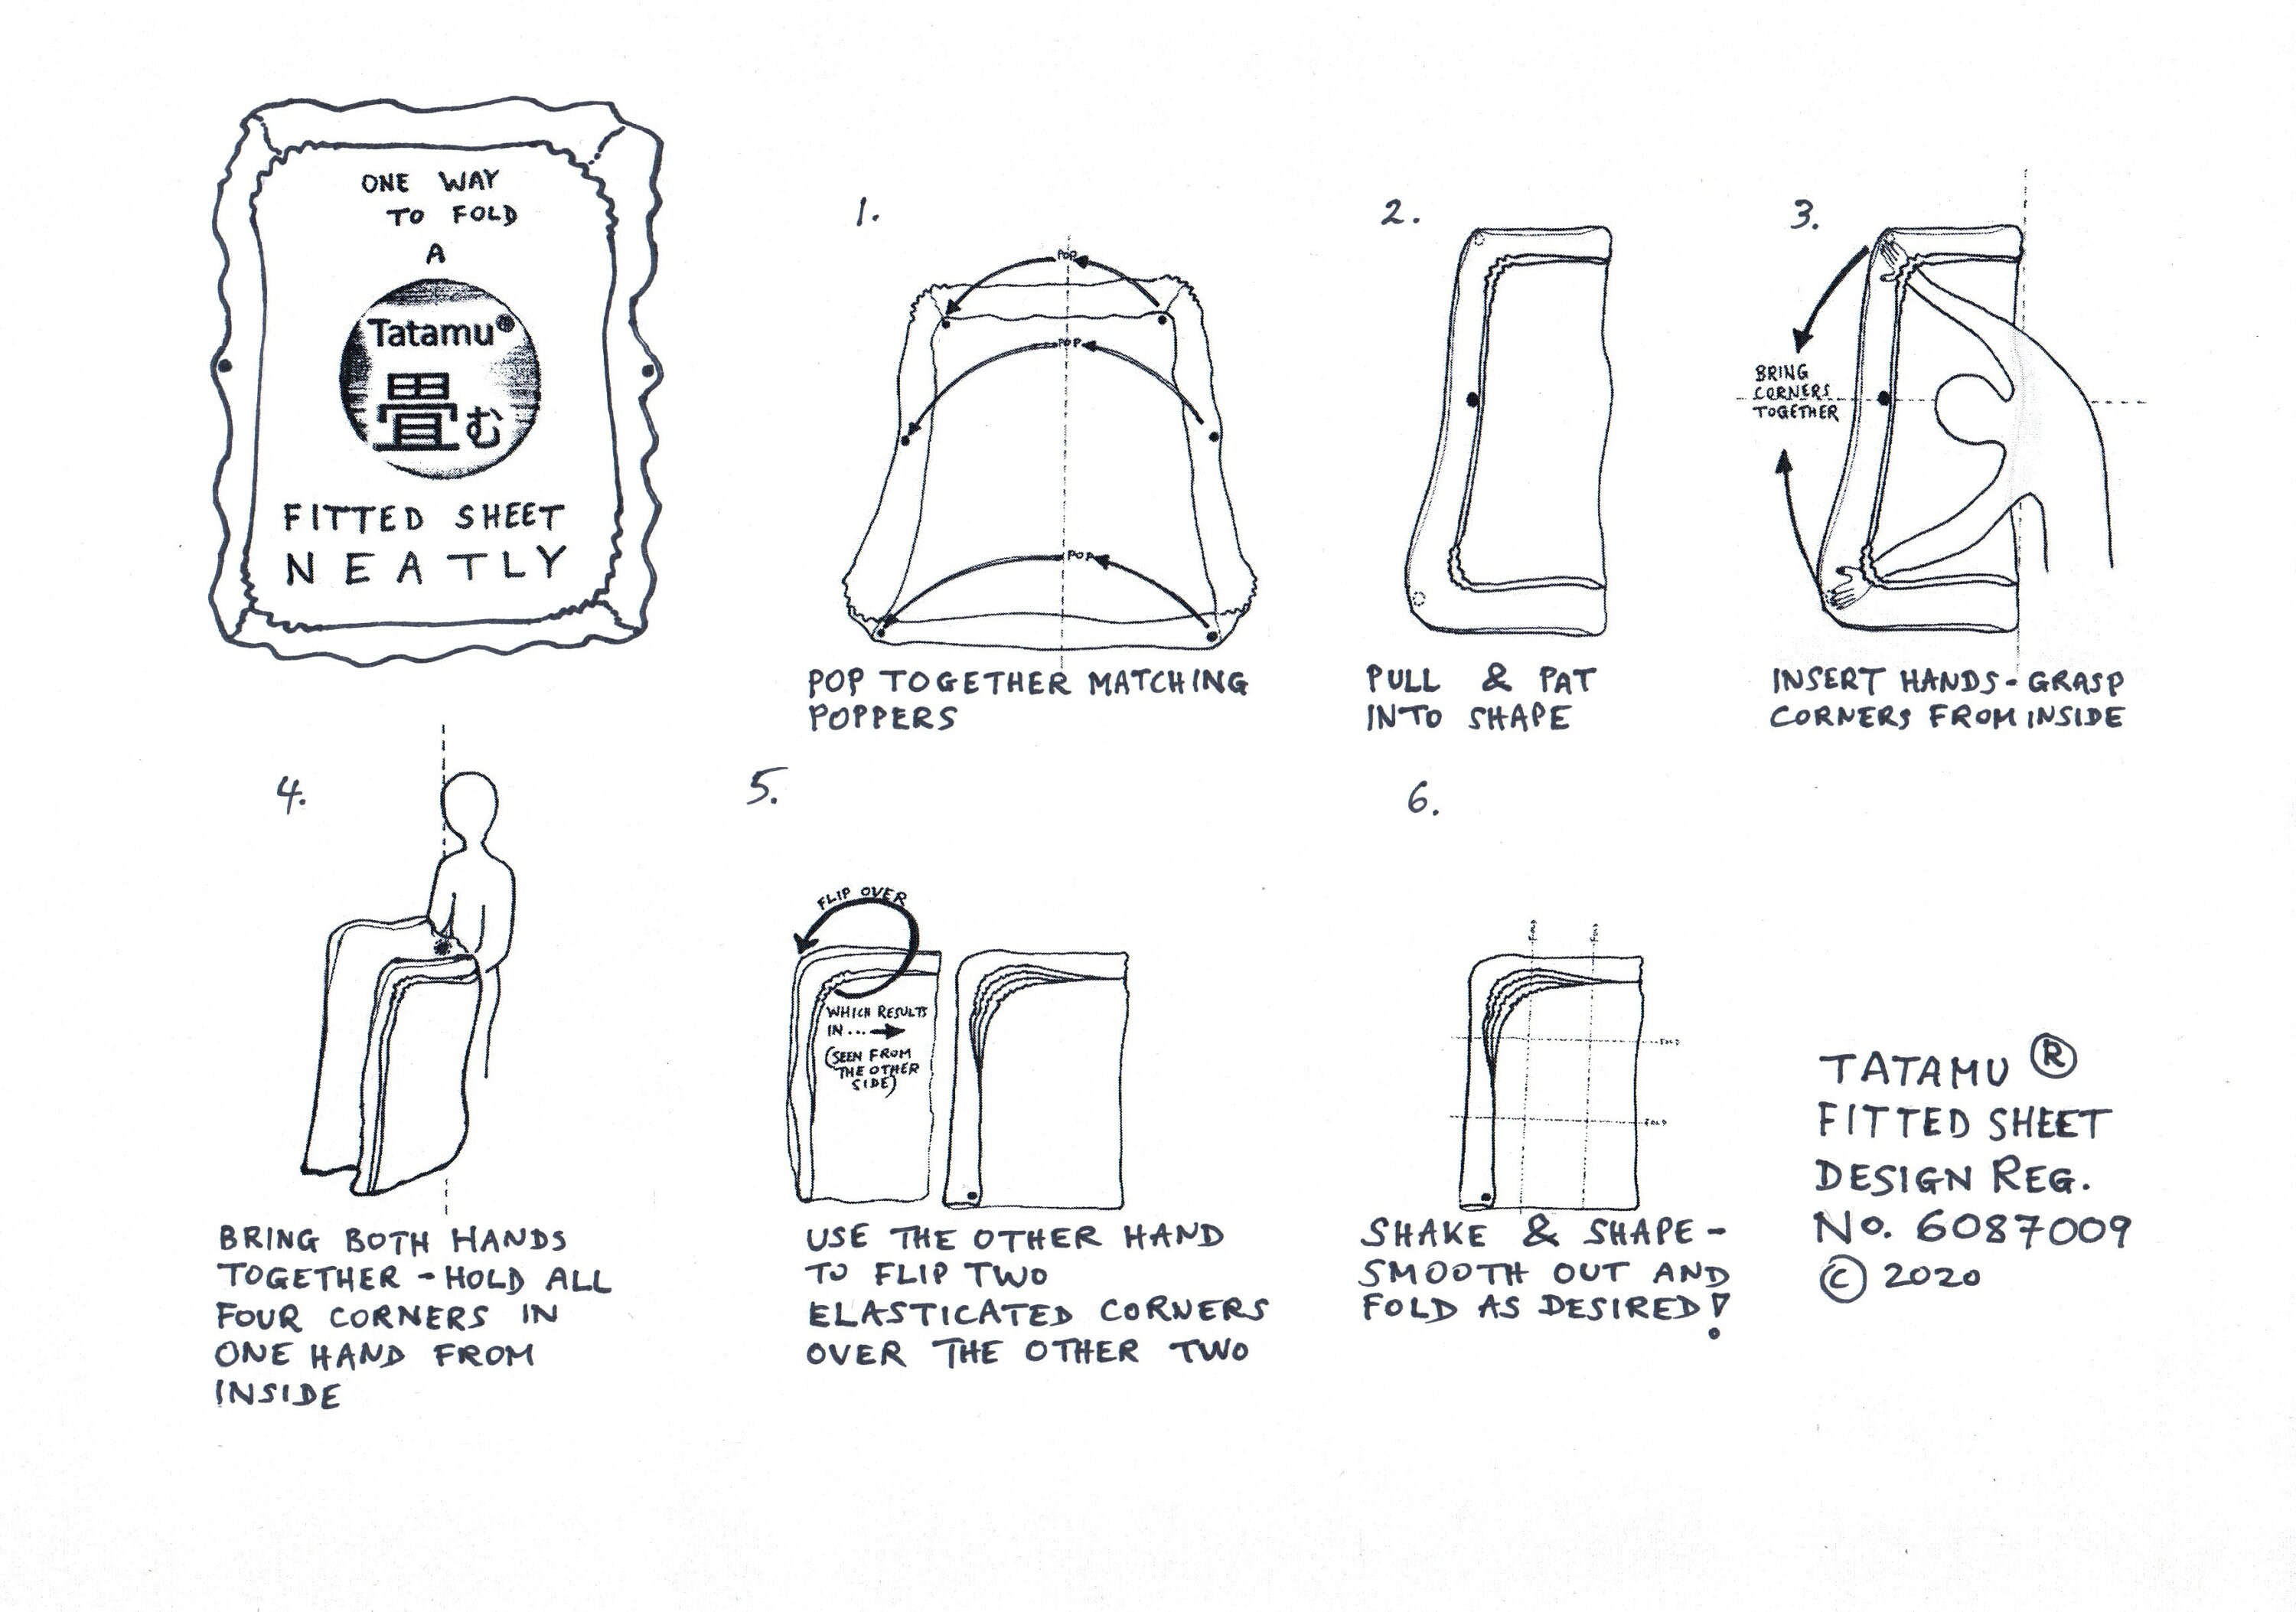 ONE WAY
TO FOLD
A
Tatamu®
畳む
FITTED SHEET
NEATLY
1.
POP
POP
POP
POP TOGETHER MATCHING
POPPERS
2.
PULL & PAT
INTO SHAPE
3.
BRING
CORNERS
TOGETHER
INSERT HANDS - GRASP
CORNERS FROM INSIDE
4.
BRING BOTH HANDS
TOGETHER - HOLD ALL
FOUR CORNERS IN
ONE HAND FROM
INSIDE
5.
FLIP OVER
WHICH RESULTS
IN...
(SEEN FROM
THE OTHER
SIDE)
USE THE OTHER HAND
TO FLIP TWO
ELASTICATED CORNERS
OVER THE OTHER TWO
6.
FOLD
FOLD
FOLD
FOLD
SHAKE & SHAPE -
SMOOTH OUT AND
FOLD AS DESIRED!
TATAMU ®
FITTED SHEET
DESIGN REG.
No. 6087009
© 2020